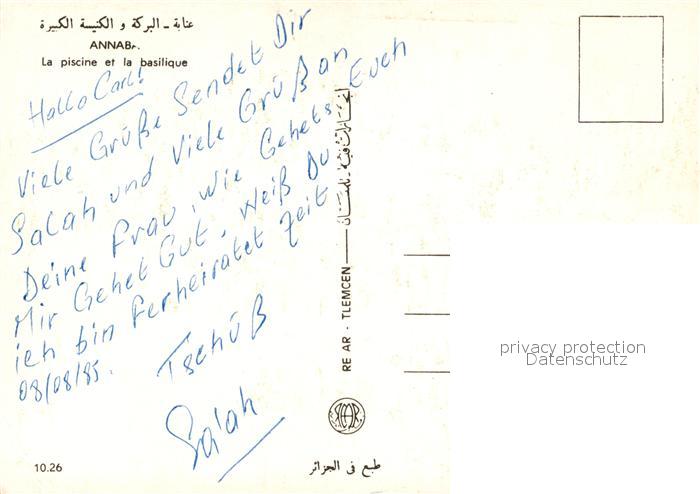 عنابة - البركة و الكنيسة الكبيرة
ANNABA.
La piscine et la basilique
Hallo Carl!
Viele Grüße Sendet Dir
Salah und Viele Grüß an
Deine Frau, Wie Gehets Euch
Mir Gehet Gut, Weiß Du
ich bin Ferheiratet Zeit
08/08/85.
Tschüß
Salah
RE AR - TLEMCEN
10.26
طبع في الجزائر
privacy protection
Datenschutz